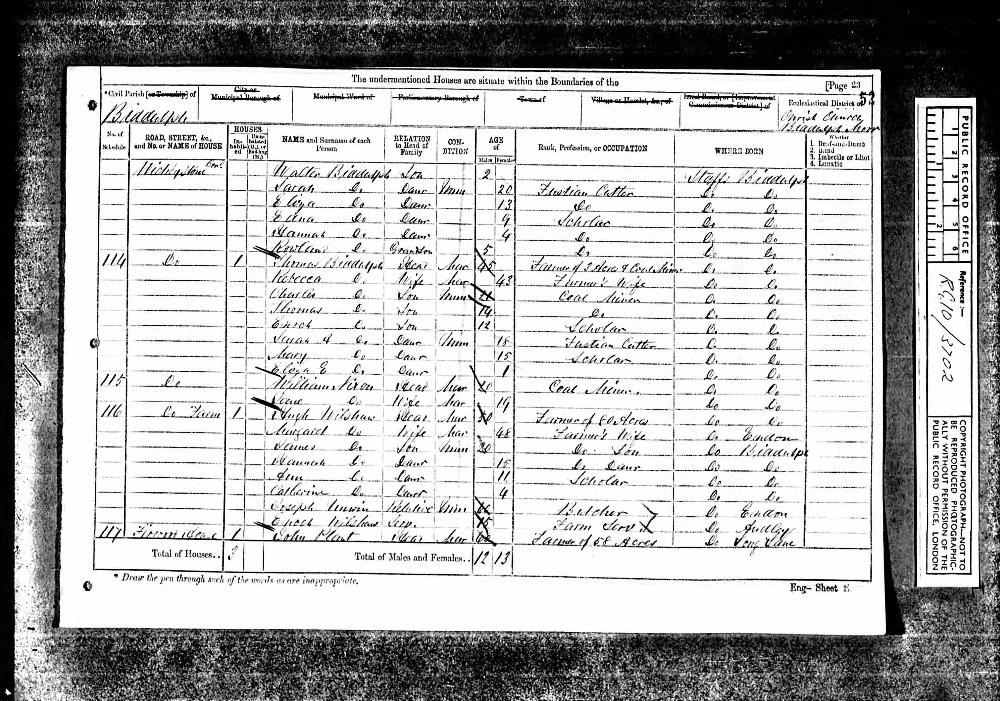 The undermentioned Houses are situate within the Boundaries of the
[Page 23
52
*Civil Parish [or Township] of
City or Municipal Borough of
Municipal Ward of
Parliamentary Borough of
Town of
Village or Hamlet, &c., of
Local Board, or [Improvement Commissioners District] of
Ecclesiastical District of
Biddulph
Christ Church
Biddulph Moor
No. of Schedule
ROAD, STREET, &c., and No. or NAME of HOUSE
HOUSES
Inhabited
Uninhabited (U.), or Building (B.)
NAME and Surname of each Person
RELATION to Head of Family
CONDITION
AGE of
Males
Females
Rank, Profession, or OCCUPATION
WHERE BORN
Whether
1. Deaf-and-Dumb
2. Blind
3. Imbecile or Idiot
4. Lunatic
Walter Biddulph Son 2 Staffs Biddulph
Sarah Do Daur Unm 20 Fustian Cutter Do Do
Eliza Do Daur 13 Do Do Do
Edna Do Daur 9 Scholar Do Do
Hannah Do Daur 4 Do Do Do
Rowland Do Grandson 5 Do Do Do
114 Do 1 Thomas Biddulph Head Mar 45 Farmer of 3 Acres & Coal Miner Do Do
Rebecca Do Wife Mar 43 Farmer's Wife Do Do
Charles Do Son Unm 21 Coal Miner Do Do
Thomas Do Son 14 Do Do Do
Enoch Do Son 12 Scholar Do Do
Sarah A Do Daur Unm 18 Fustian Cutter Do Do
Mary Do Daur 15 Scholar Do Do
Eliza E Do Daur 1 Do Do
115 Do William Nixon Head Mar Coal Miner Do Do
Jane Do Wife Mar 19 Do Do
116 Do Farm 1 Hugh Wilshaw Head Mar 50 Farmer of 80 Acres Do Do
Margaret Do Wife Mar 48 Farmer's Wife Do Endon
James Do Son Unm 20 Do Son Do Biddulph
Hannah Do Daur 15 Do Daur Do Do
Ann Do Daur 11 Scholar Do Do
Catherine Do Daur 9 Do Do
Joseph Unwin Relative Unm Butcher Do Endon
Enoch Wilshaw Serv. 15 Farm Serv Do Audley
117 1 John Plant Head Mar 60 Farmer of 58 Acres Do Long Lane
Total of Houses.. 3
Total of Males and Females.. 12 13
* Draw the pen through such of the words as are inappropriate.
Eng— Sheet E.
PUBLIC RECORD OFFICE
1 2 3 4 5 6
Reference:—
RG10/3202
COPYRIGHT PHOTOGRAPH—NOT TO BE REPRODUCED PHOTOGRAPHICALLY WITHOUT PERMISSION OF THE PUBLIC RECORD OFFICE, LONDON